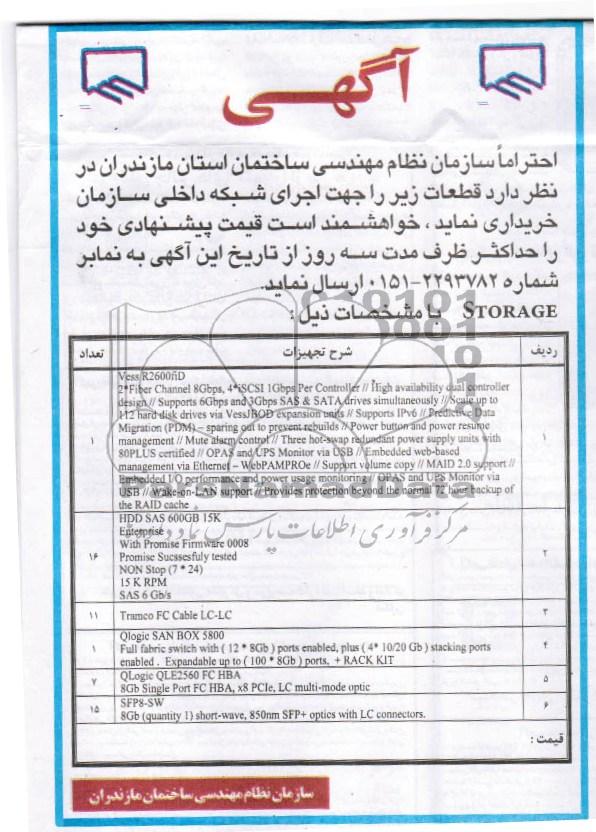 آگهی
احتراماً سازمان نظام مهندسی ساختمان استان مازندران در
نظر دارد قطعات زیر را جهت اجرای شبکه داخلی سازمان
خریداری نماید ، خواهشمند است قیمت پیشنهادی خود
را حداکثر ظرف مدت سه روز از تاریخ این آگهی به نمابر
شماره ۲۲۹۳۷۸۲-۰۱۵۱ ارسال نماید.
STORAGE با مشخصات ذیل :
ردیف شرح تجهیزات تعداد
۱ Vess R2600fiD ۱
2*Fiber Channel 8Gbps, 4*iSCSI 1Gbps Per Controller // High availability dual controller
design // Supports 6Gbps and 3Gbps SAS & SATA drives simultaneously // Scale up to
112 hard disk drives via VessJBOD expansion units // Supports IPv6 // Predictive Data
Migration (PDM) – sparing out to prevent rebuilds // Power button and power resume
management // Mute alarm control // Three hot-swap redundant power supply units with
80PLUS certified // OPAS and UPS Monitor via USB // Embedded web-based
management via Ethernet – WebPAMPROe // Support volume copy // MAID 2.0 support //
Embedded I/O performance and power usage monitoring // OPAS and UPS Monitor via
USB // Wake-on-LAN support // Provides protection beyond the normal 72 hour backup of
the RAID cache
۲ HDD SAS 600GB 15K ۱۶
Enterprise
With Promise Firmware 0008
Promise Sucssesfuly tested
NON Stop (7 * 24)
15 K RPM
SAS 6 Gb/s
۳ Tramco FC Cable LC-LC ۱۱
۴ Qlogic SAN BOX 5800 ۱
Full fabric switch with ( 12 * 8Gb ) ports enabled, plus ( 4* 10/20 Gb ) stacking ports
enabled . Expandable up to ( 100 * 8Gb ) ports. + RACK KIT
۵ QLogic QLE2560 FC HBA ۷
8Gb Single Port FC HBA, x8 PCIe, LC multi-mode optic
۶ SFP8-SW ۱۵
8Gb (quantity 1) short-wave, 850nm SFP+ optics with LC connectors.
قیمت :
سازمان نظام مهندسی ساختمان مازندران
ParsNamadData
مرکز فرآوری اطلاعات پارس نماد داده ها